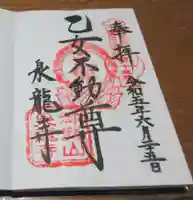 奉拝
令和五年六月二十五日
乙女不動尊
泉龍寺